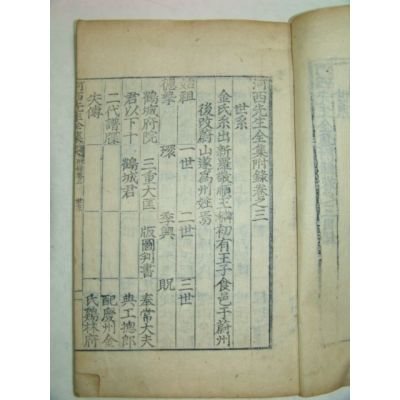 河西先生全集附錄卷之三
世系
金氏系出新羅敬順王初有王子食邑于蔚州
後改蔚山遂爲州姓焉
始祖 一世 二世 三世
德摯 環 季興 貺
鶴城府院 三重大匡 版圖判書 奉常大夫
君以下十 鶴城君 典工摠郎
二代譜牒 配慶州金
失傳 氏鷄林府
河西先生全集